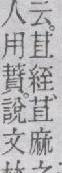 云。苴絰、苴麻之
人用蕡。說文